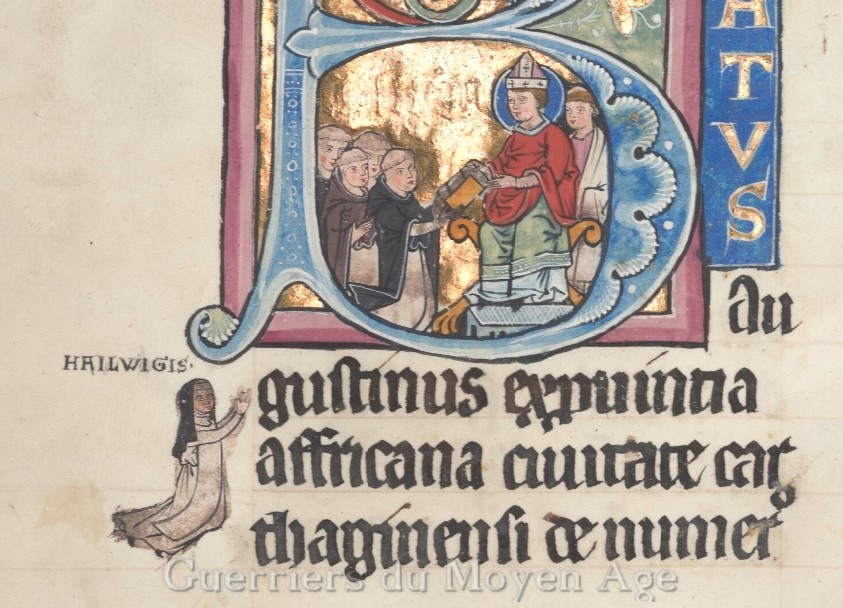 B
A
T
V
S
Au
HAILWIGIS·
gustinus expuintia
affricana ciuitate car
thaginensi de numer
Guerriers du Moyen Age